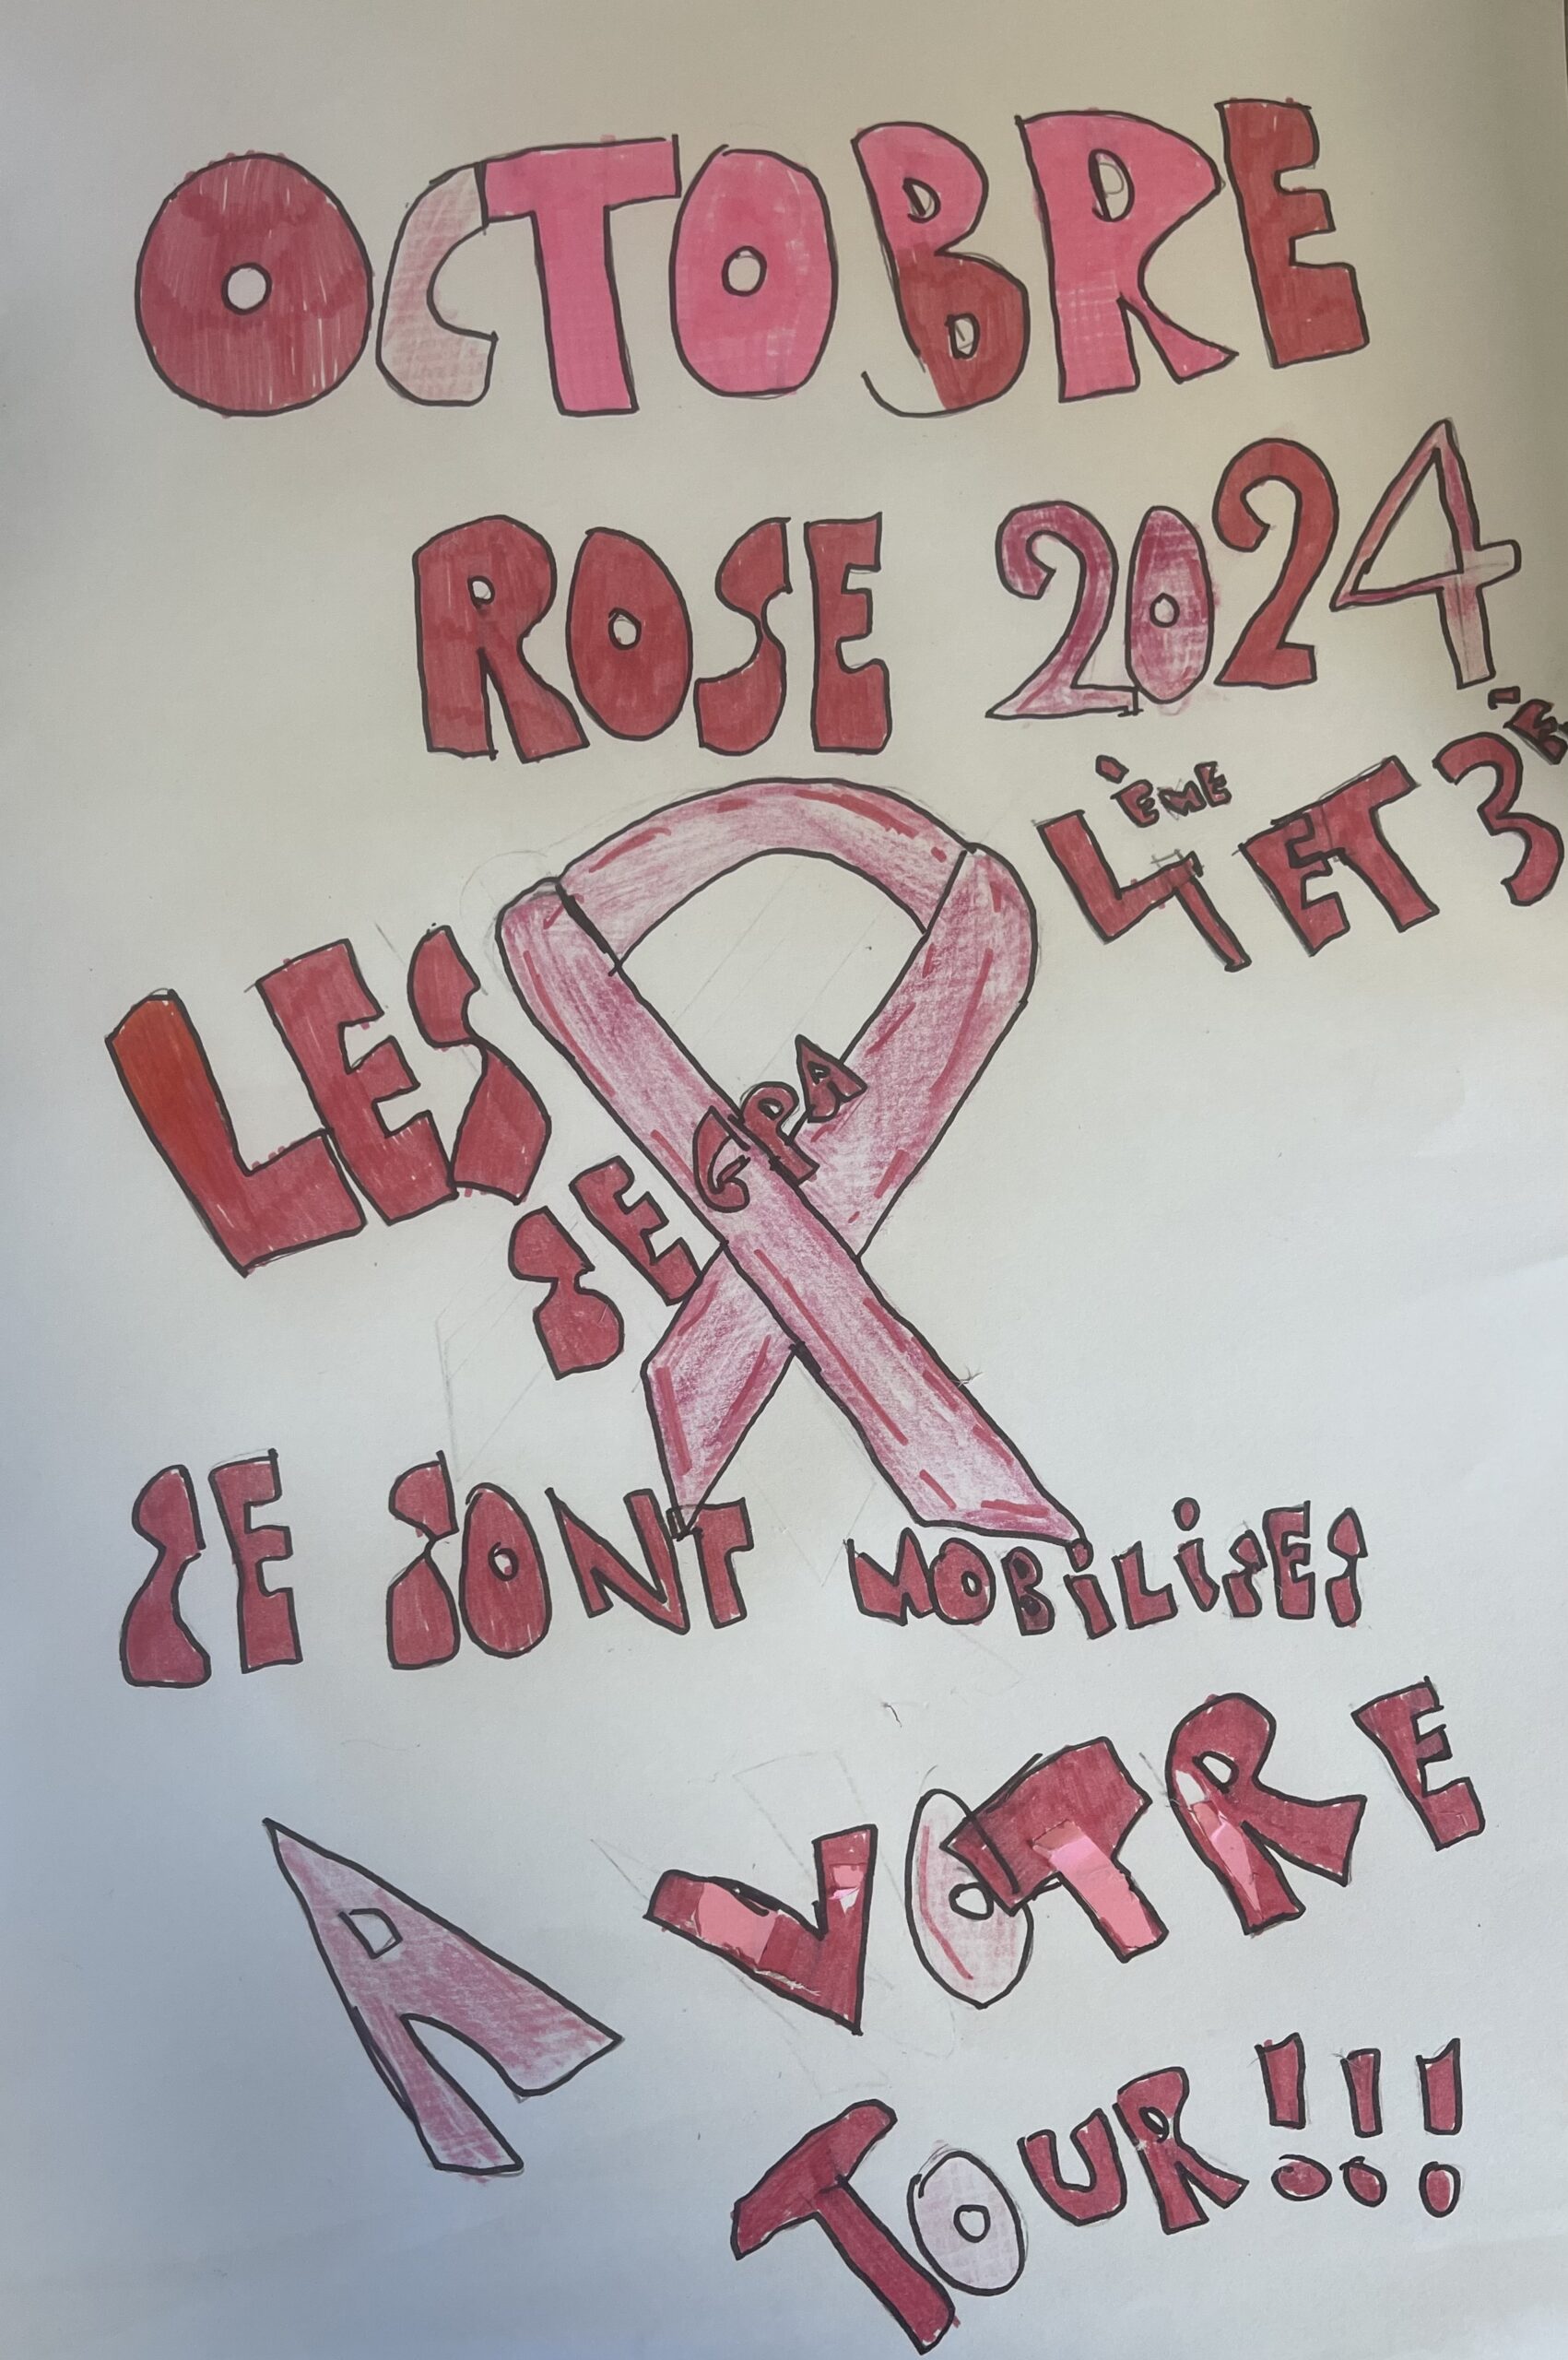 OCTOBRE
ROSE 2024
LES 4ÈME ET 3È
SEGPA
SE SONT MOBILISES
A VOTRE
TOUR !!!